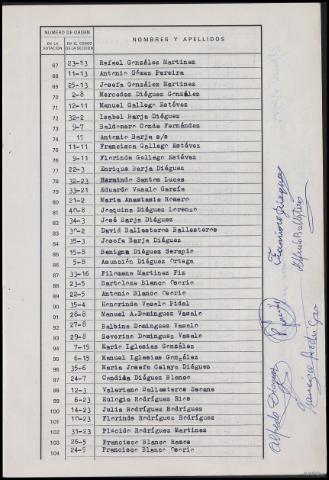 NUMERO DE ORDEN
NOMBRES Y APELLIDOS
EN LA VOTACION
EN EL CENSO DE LA SECCION
67 23-13 Rafael González Martínez
68 11-13 Antonio Gómez Pereira
69 25-13 Josefa González Martínez
70 2-8 Mercedes Diéguez González
71 12-11 Manuel Gallego Estévez
72 32-2 Isabel Barja Diéguez
73 9-7 Baldomero Conde Fernández
74 15 Antonio Barja
75 11-11 Francisca Gallego Estévez
76 9-11 Florinda Gallego Estévez
77 22-3 Enrique Barja Diéguez
78 32-23 Herminda Santos Lucas
79 33-21 Eduardo Vasalo García
80 21-2 María Anastasia Romero
81 40-8 Joaquina Diéguez Lorenzo
82 34-3 José Barja Diéguez
83 30-2 David Ballesteros Ballesteros
84 35-3 Josefa Barja Diéguez
85 15-8 Benigna Diéguez Serapio
86 5-8 Asunción Diéguez Ortega
87 33-16 Filomena Martínez Fiz
88 23-5 Bartolose Blanco Osorio
89 22-5 Antonio Blanco Osorio
90 35-4 Honorinda Vasalo Fidal
91 26-8 Manuel A.Domínguez Vasalo
92 27-8 Balbina Domínguez Vasalo
93 29-8 Severino Domínguez Vasalo
94 7-15 Mario Iglesias González
95 6-15 Manuel Iglesias González
96 35-6 María Josefa Celaya Diéguez
97 24-7 Candida Diéguez Blanco
98 12-3 Valeriano Ballesteros Seoane
99 6-23 Eulogia Rodríguez Rico
100 14-23 Julia Rodríguez Rodríguez
101 10-23 Florinda Rodríguez Rodríguez
102 31-23 Plácido Rodríguez Martínez
103 26-5 Francisco Blanco Ramos
104 24-5 Francisco Blanco Osorio
Alfredo Diéguez